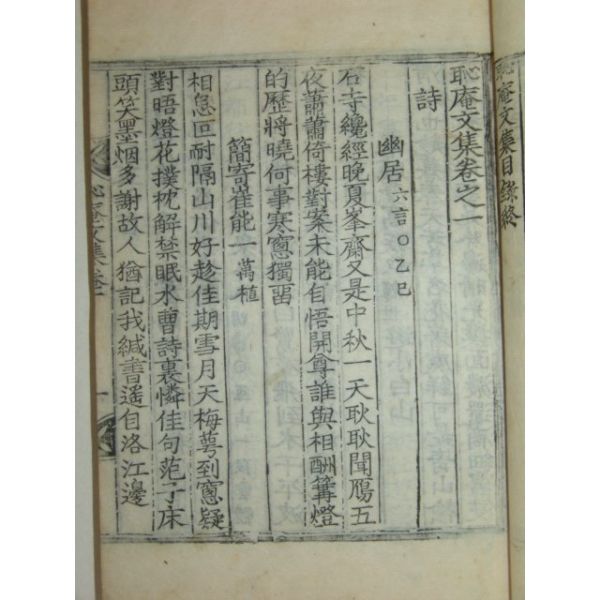 恥庵文集目錄終
恥庵文集卷之一
詩
幽居 六言○乙巳
石寺纔經晩夏峯齋又是中秋一天耿耿聞鴈五
夜蕭蕭倚樓對案未能自悟開尊誰與相酬篝燈
的歷將曉何事寒窓獨留
簡寄崔能一 萬植
相怱叵耐隔山川好趁佳期雪月天梅萼到窓疑
對晤燈花撲枕解禁眠水曹詩裏憐佳句范子床
頭笑墨烟多謝故人猶記我緘書遙自洛江邊
恥庵文集卷一
一